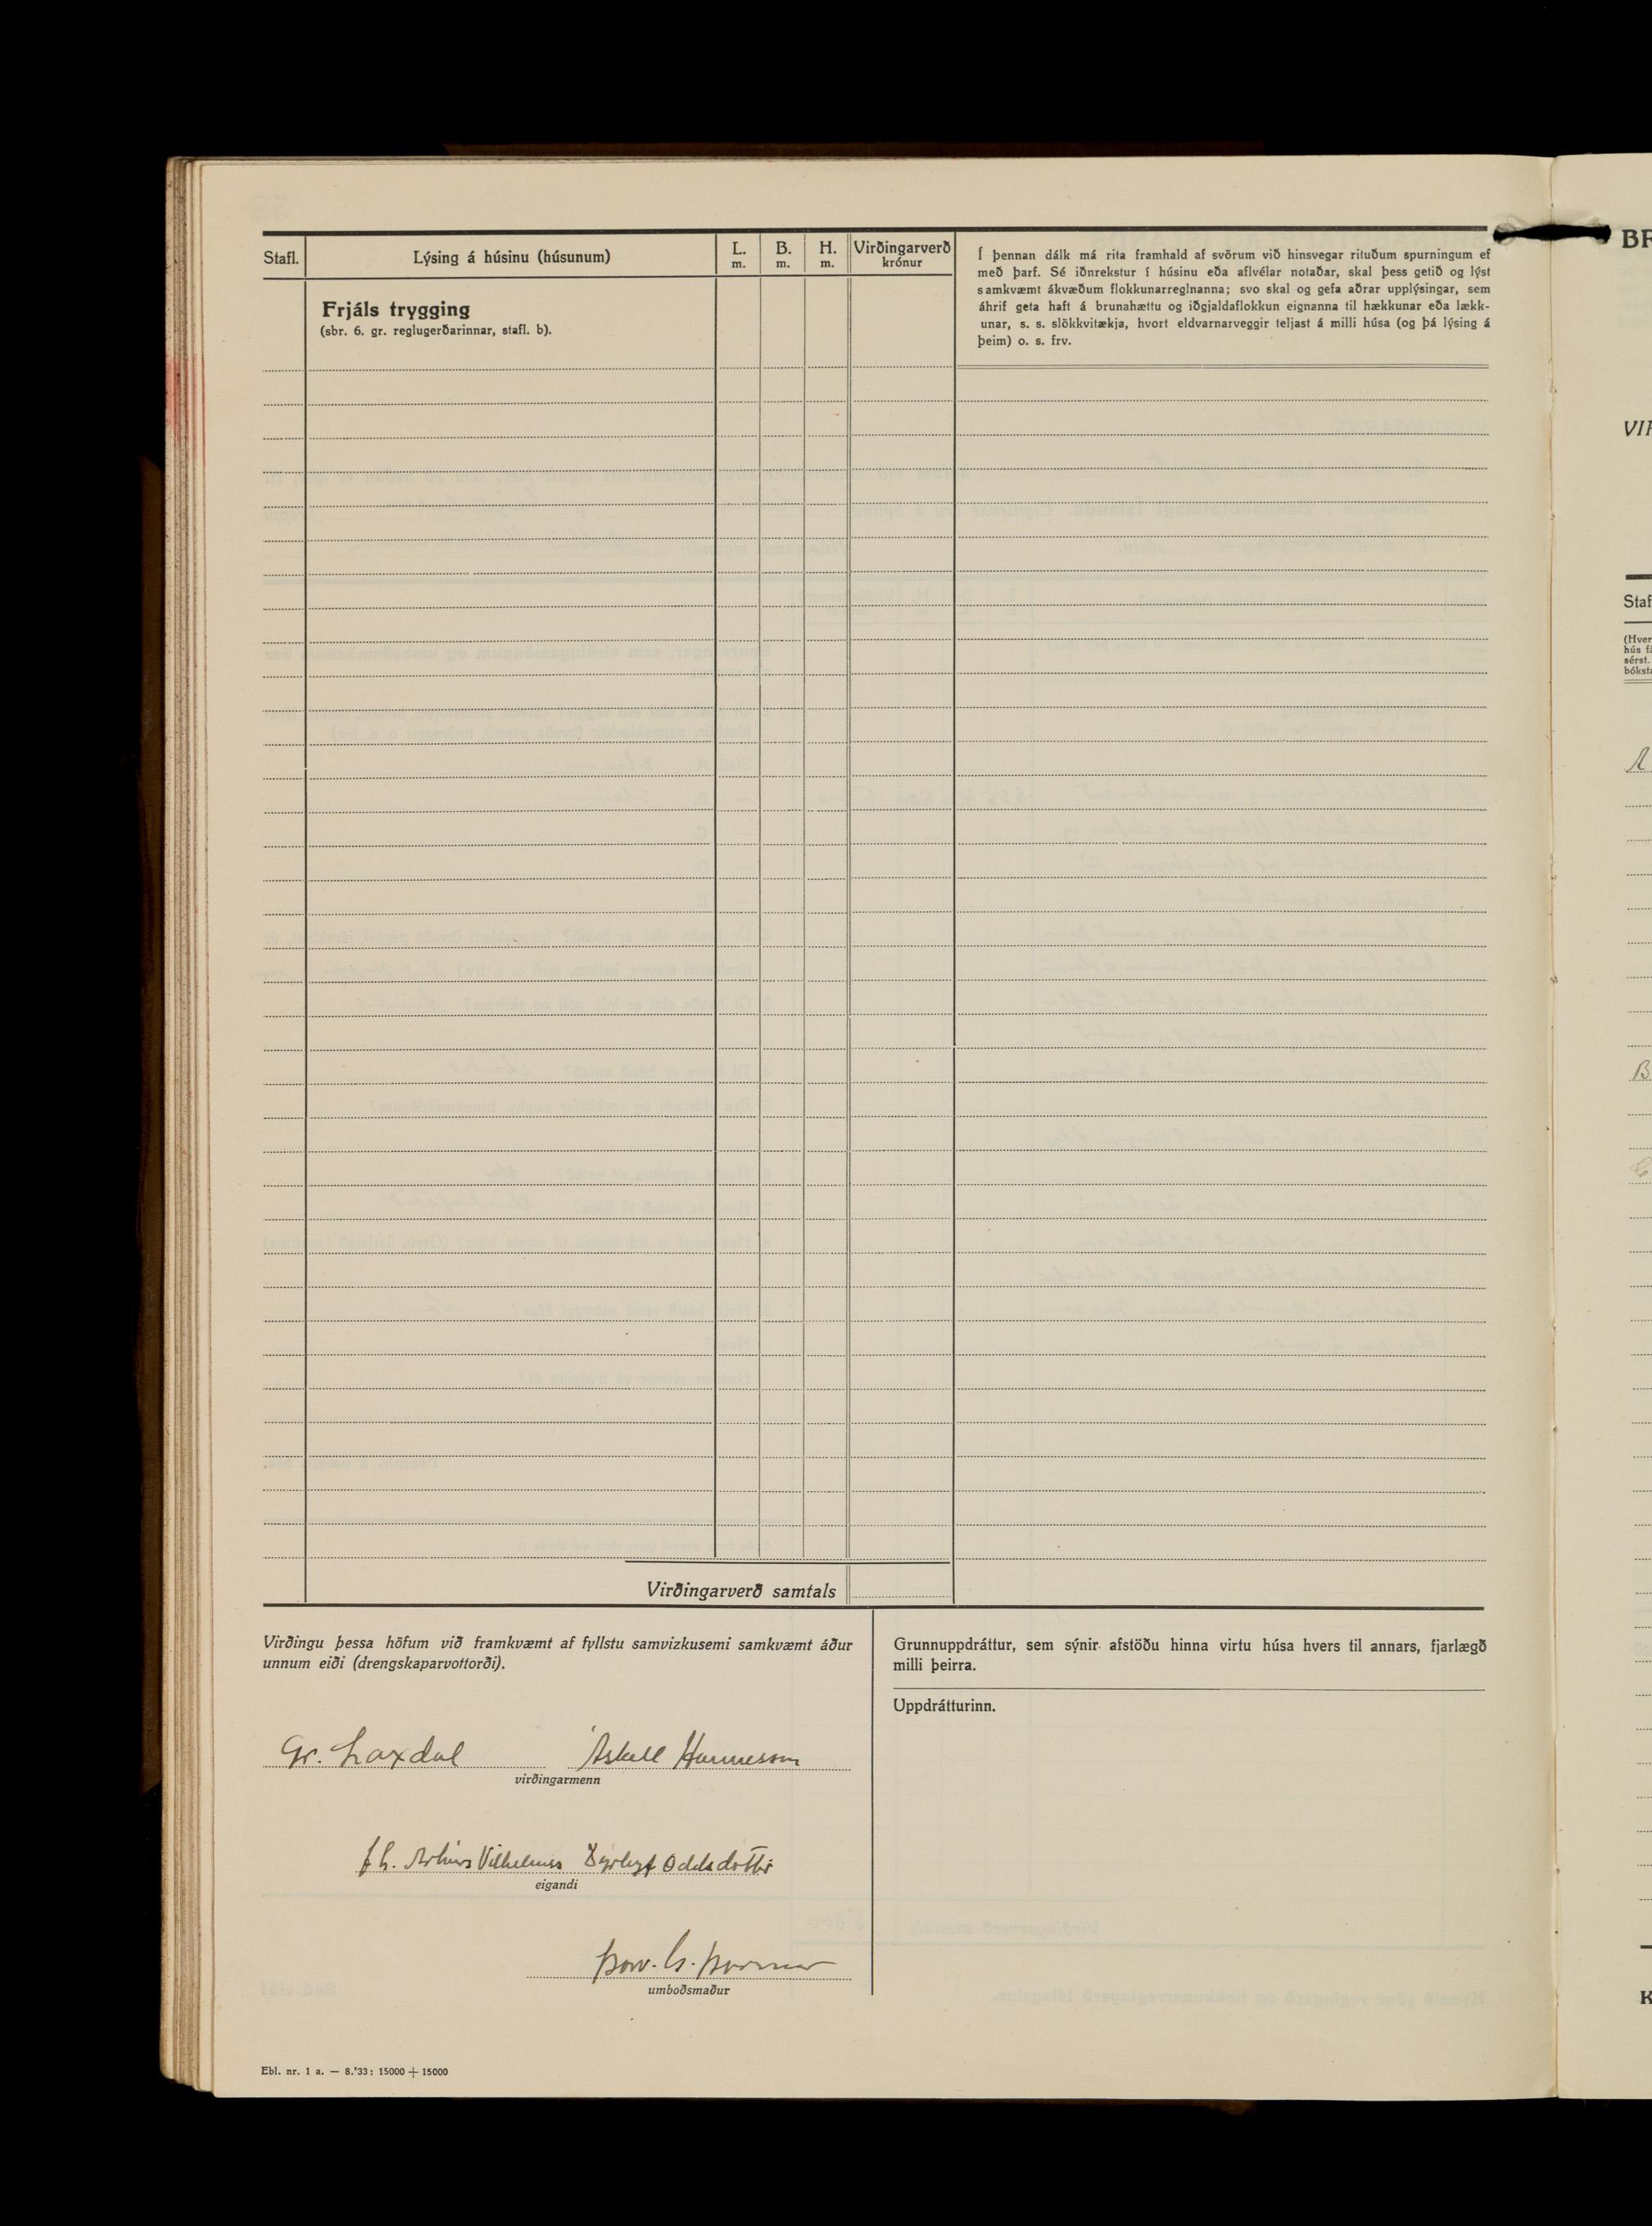 Stafl.
Lýsing á húsinu (húsunum)
L.
m.
B.
m.
H.
m.
Virðingarverð
krónur
Frjáls trygging
(sbr. 6. gr. reglugerðarinnar, stafl. b).
Í þennan dálk má rita framhald af svörum við hinsvegar rituðum spurningum ef
með þarf. Sé iðnrekstur í húsinu eða aflvélar notaðar, skal þess getið og lýst
samkvæmt ákvæðum flokkunarreglnanna; svo skal og gefa aðrar upplýsingar, sem
áhrif geta haft á brunahættu og iðgjaldaflokkun eignanna til hækkunar eða lækk-
unar, s. s. slökkvitækja, hvort eldvarnarveggir teljast á milli húsa (og þá lýsing á
þeim) o. s. frv.
Virðingarverð samtals
Virðingu þessa höfum við framkvæmt af fyllstu samvizkusemi samkvæmt áður
unnum eiði (drengskaparvottorði).
Gr. Laxdal Áskell Hannesson
virðingarmenn
f.h. Vilhelms Oddsdóttir
eigandi
umboðsmaður
Grunnuppdráttur, sem sýnir afstöðu hinna virtu húsa hvers til annars, fjarlægð
milli þeirra.
Uppdrátturinn.
Ebl. nr. 1 a. — 8.'33: 15000 + 15000
BR
VIR
Staf
(Hver
hús f
sérst.
bóksta
A
B
K